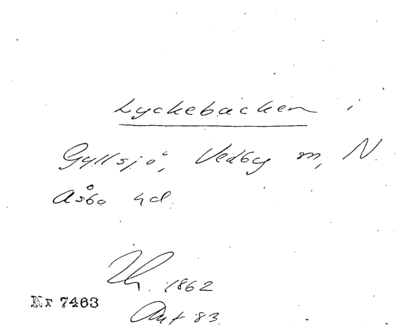 Lyckebacken i
Gyllsjö, Vedby sn, N.
Åsbo hd.
Th. 1862
Ant 83
Nr 7463